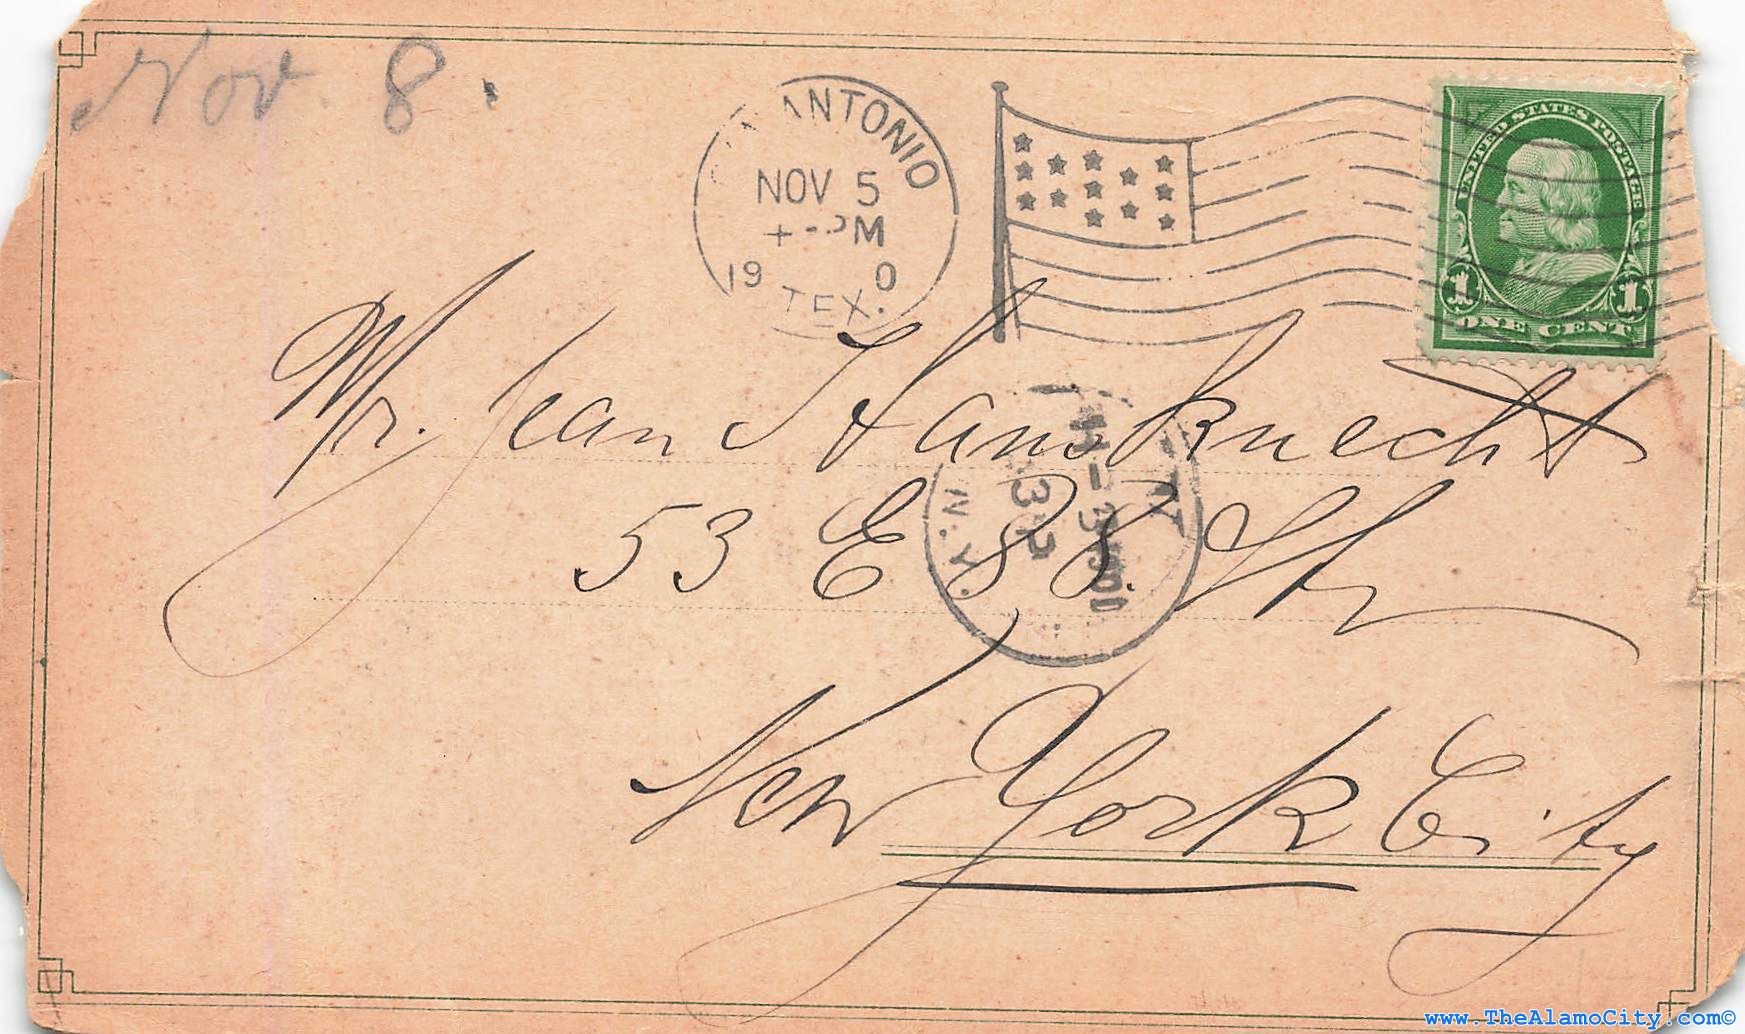 Nov. 8.
ANTONIO
NOV 5
PM
19 0
TEX.
UNITED STATES POSTAGE
1 1
ONE CENT
Mr. Jean J Hansknecht
53 E 88. Str
N.Y.
New York City
www.TheAlamoCity.com©